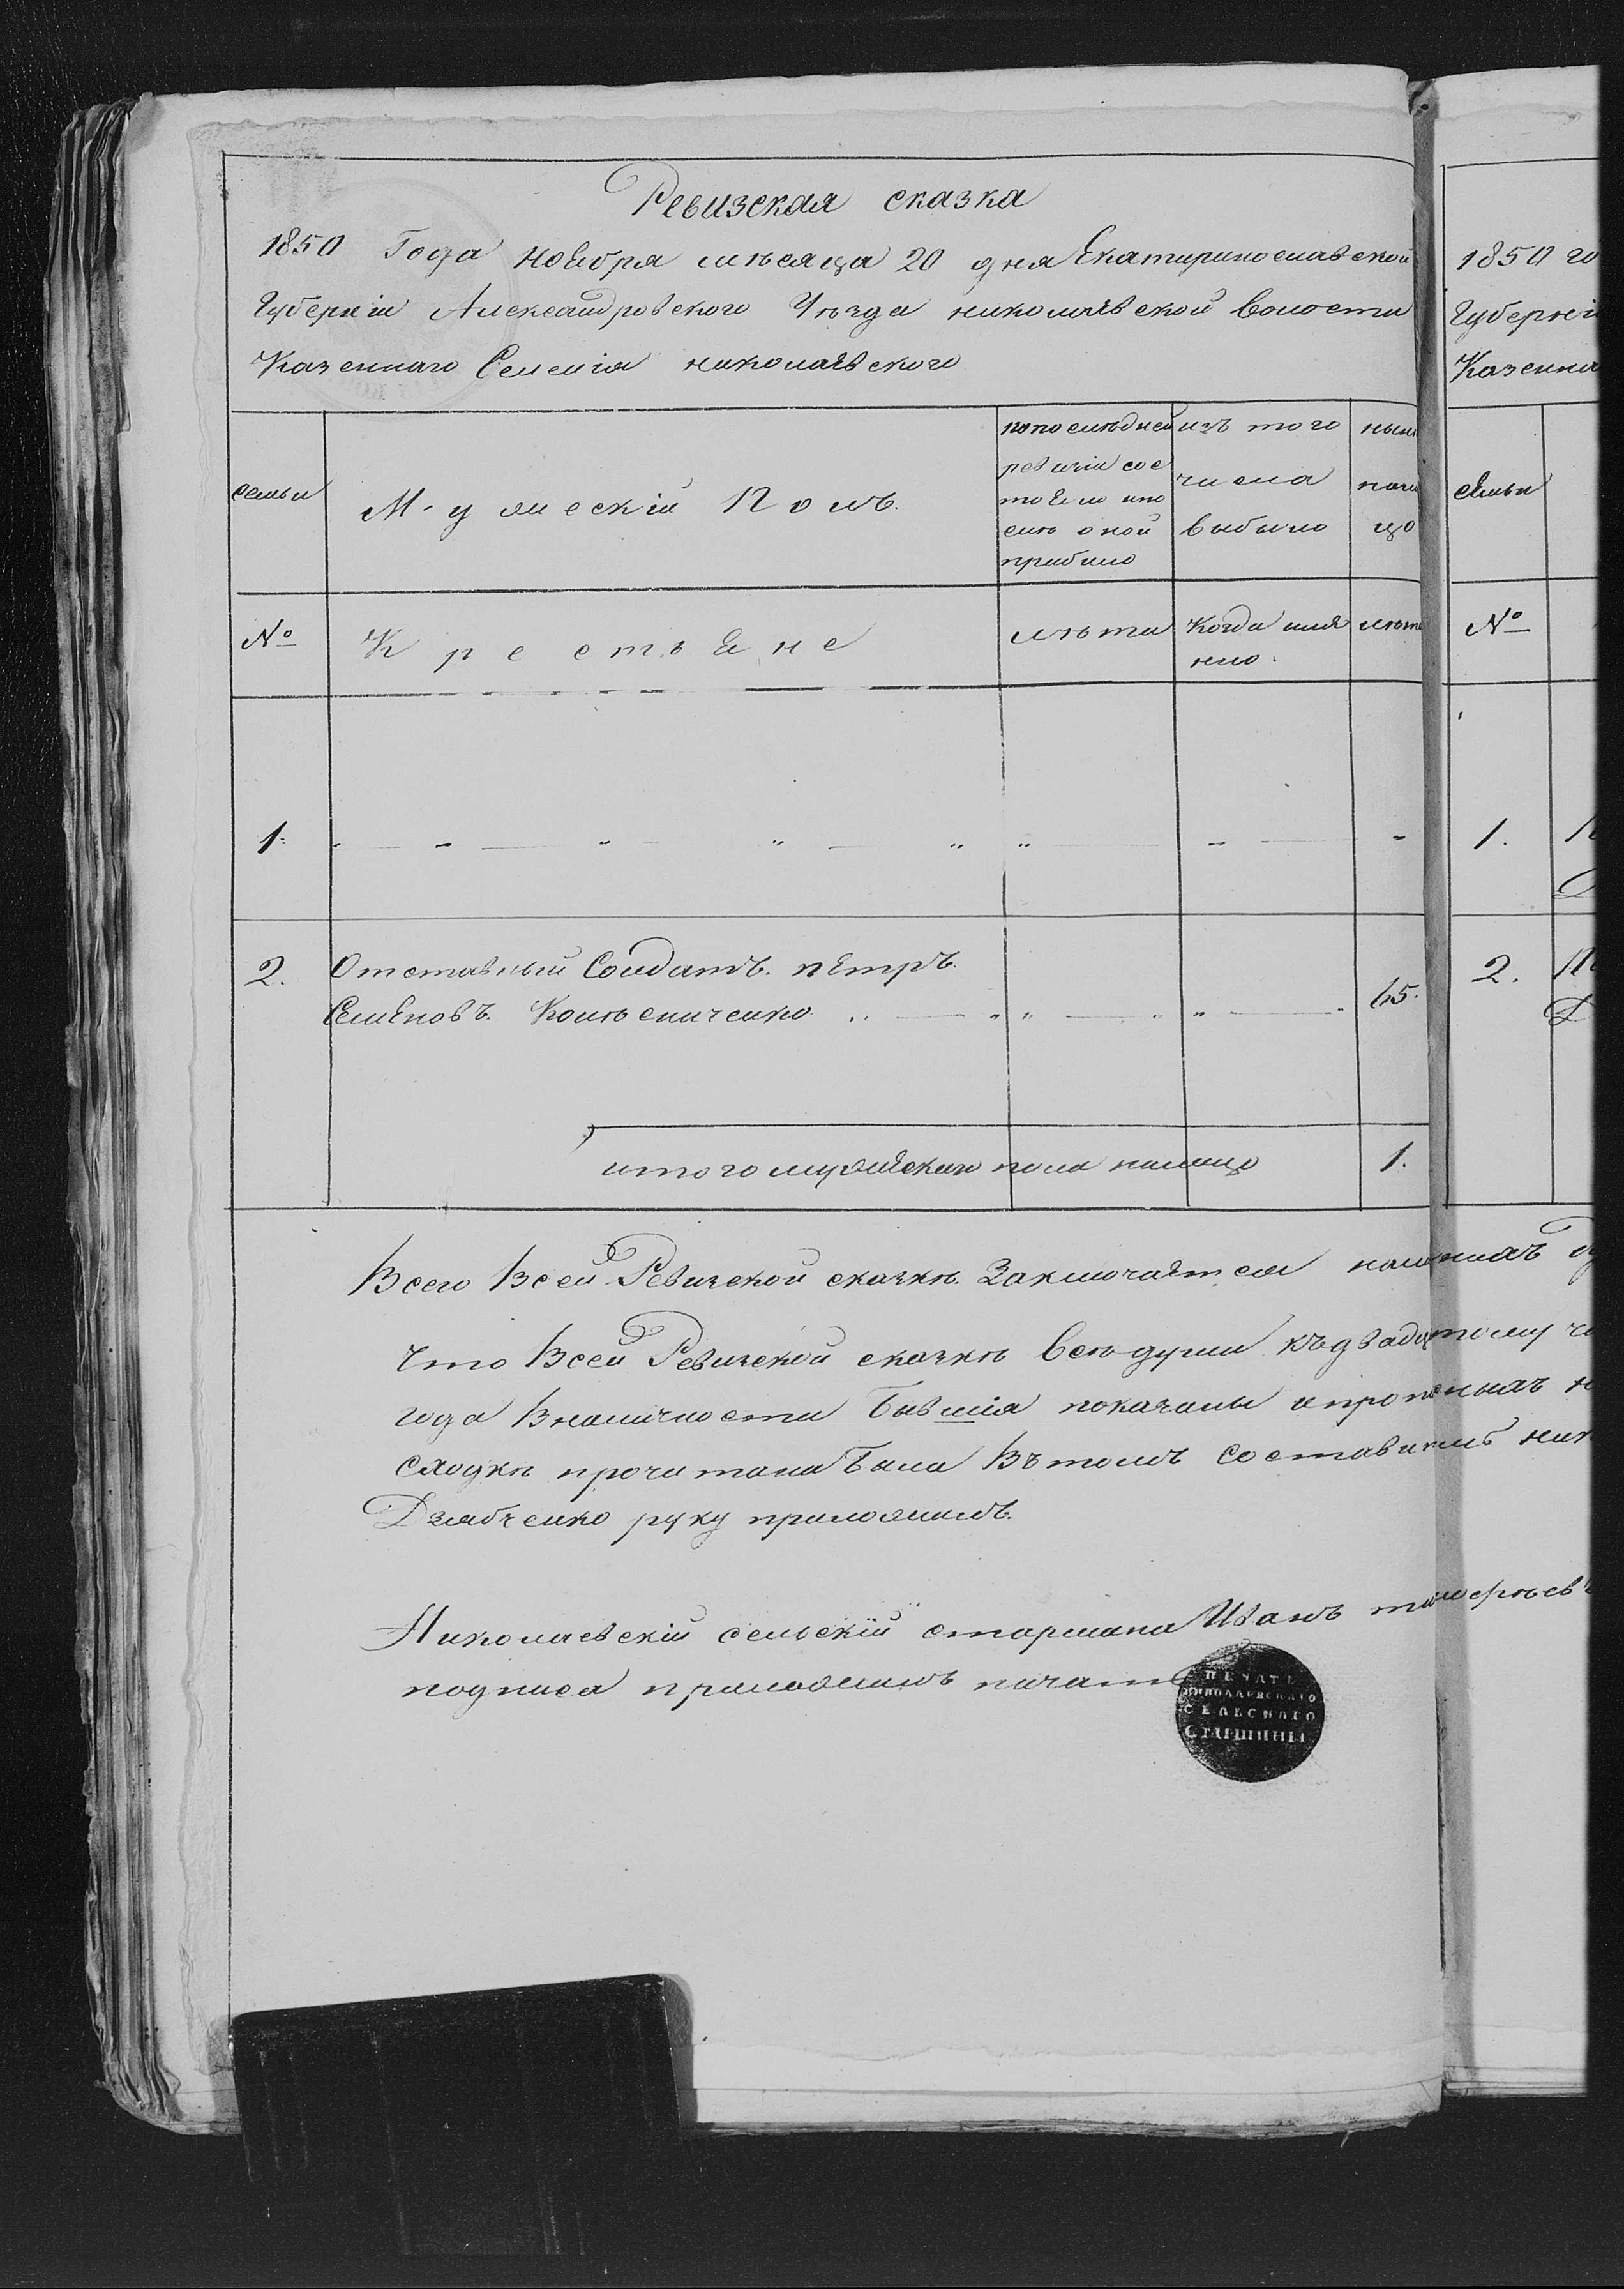 Ревизская сказка
1850 Года ноебря месяца 20 дня Екатеринославской
Губерніи Александровского Уезда николаевской волости
Казеннаго Селенія николаевского
семьи
Мужескій Полъ.
попоследней
ревизіи сос
тоело ипо
сле оной
прибыло
изъ того
числа
выбыло
ныне
нали
цо
№
Крестьене
лета
Когда имя
нно.
лета
1.
2. Отставный Солдатъ. петръ.
Семеновъ. Колесниченко 65.
итого мужеска пола налицо 1.
Всего Всей Ревизской сказке Заключается
что Всей Ревизской сказке все души къдвадцатому
года Вналичности Бывшія показаны ипропеныхъ
сходке прочитана Была Въ томъ составилъ
Дзябченко руку приложилъ.
Николаевскій сельскій старшина Иванъ
подписа приложилъ печать
ПЕЧАТЬ
НИКОЛАЕВСКАГО
СЕЛЬСКАГО
СТАРШИНЫ
1850 го
Губерніи
Казенна
семьи
№
1.
2.